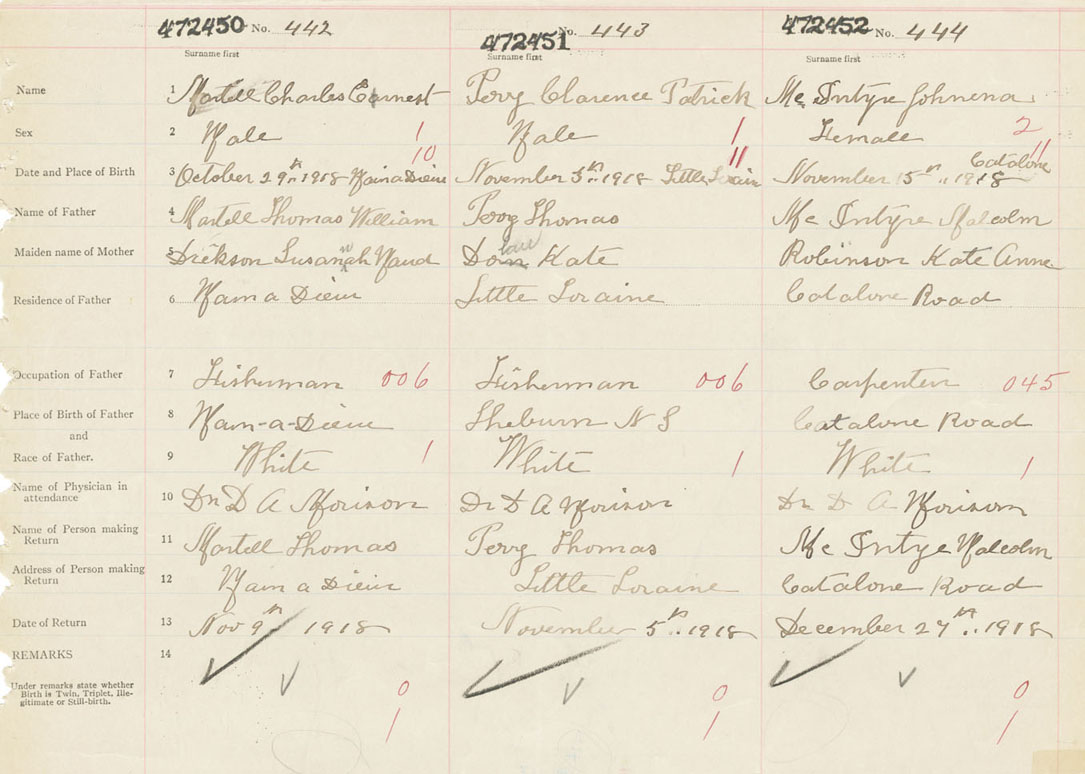 472450 No. 442
472451 No. 443
472452 No. 444
Surname first
Surname first
Surname first
Name 1 Martell Charles Earnest Perry Clarence Patrick Mc Intyre Johnena
Sex 2 Male 1 Male 1 Female 2
10 11 11
Date and Place of Birth 3 October 29th 1918 Main a Dieu November 5th 1918 Little Lorain November 15th 1918 Catalone
Name of Father 4 Martell Thomas William Perry Thomas Mc Intyre Malcolm
Maiden name of Mother 5 Dickson Susannah Maud Kate Robinson Kate Anne
Residence of Father 6 Mam a Dieu Little Loraine Catalone Road
Occupation of Father 7 Fisherman 006 Fisherman 006 Carpenter 045
Place of Birth of Father 8 Mam-a-Dieu Sheburn N S Catalone Road
and
Race of Father. 9 White 1 White 1 White 1
Name of Physician in
attendance 10 Dr D A Morison Dr D A Morison Dr D A Morison
Name of Person making
Return 11 Martell Thomas Perry Thomas Mc Intye Malcolm
Address of Person making
Return 12 Mam a Dieu Little Loraine Catalone Road
Date of Return 13 Nov 9th 1918 November 5th 1918 December 27th 1918
REMARKS 14
Under remarks state whether
Birth is Twin, Triplet, Ille-
gitimate or Still-birth.
0 0 0
1 1 1